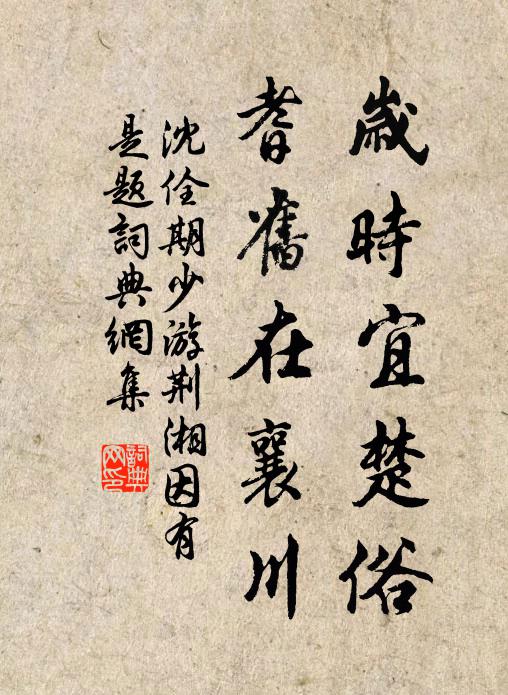 歲時宜楚俗
耆舊在襄川
沈佺期少游荆湘因有
是題詞典網集
詞典網印